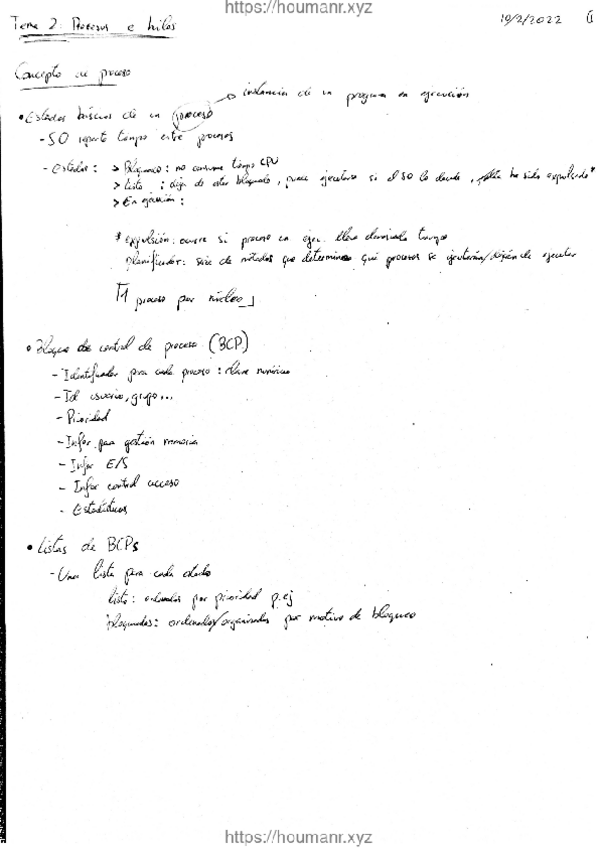 https://houmanr.xyz
Tema 2: Procesos e hilos
19/2/2022
Concepto de proceso
instancia de un programa en ejecución
• Estados básicos de un proceso
- SO reparte tiempo entre procesos
- Estados: > Bloqueado: no consume tiempo CPU
> Listo: deja de estar bloqueado, puede ejecutarse si el SO lo decide, ha sido expulsado*
> En ejecución:
* expulsión: ocurre si proceso en ejec. lleva demasiado tiempo
planificador: serie de métodos que determinan qué procesos se ejecutarán/dejan de ejecutar
1 proceso por núcleo
• Bloque de control de proceso (BCP)
- Identificador para cada proceso: clave numérica
- Id usuario, grupo...
- Prioridad
- Infor. para gestión memoria
- Infor E/S
- Infor control acceso
- Estadísticas
• Listas de BCPs
- Una lista para cada estado
listo: ordenados por prioridad p.ej
bloqueados: ordenados/organizados por motivo de bloqueo
https://houmanr.xyz